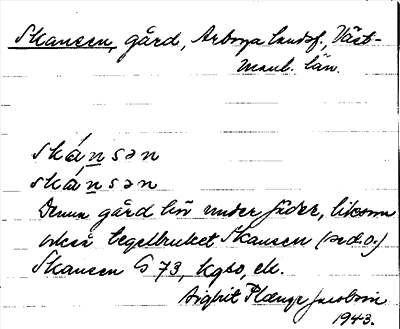 Skansen, gård, Arboga landsf., Väst-
manl. län.
skánsən
skánsən
Denna gård hör under Jäder, liksom
också tegelbruket Skansen (se d.o.)
Skansen G 73, kgbo, ek.
Sigbrit Plænge Jacobson
1943.